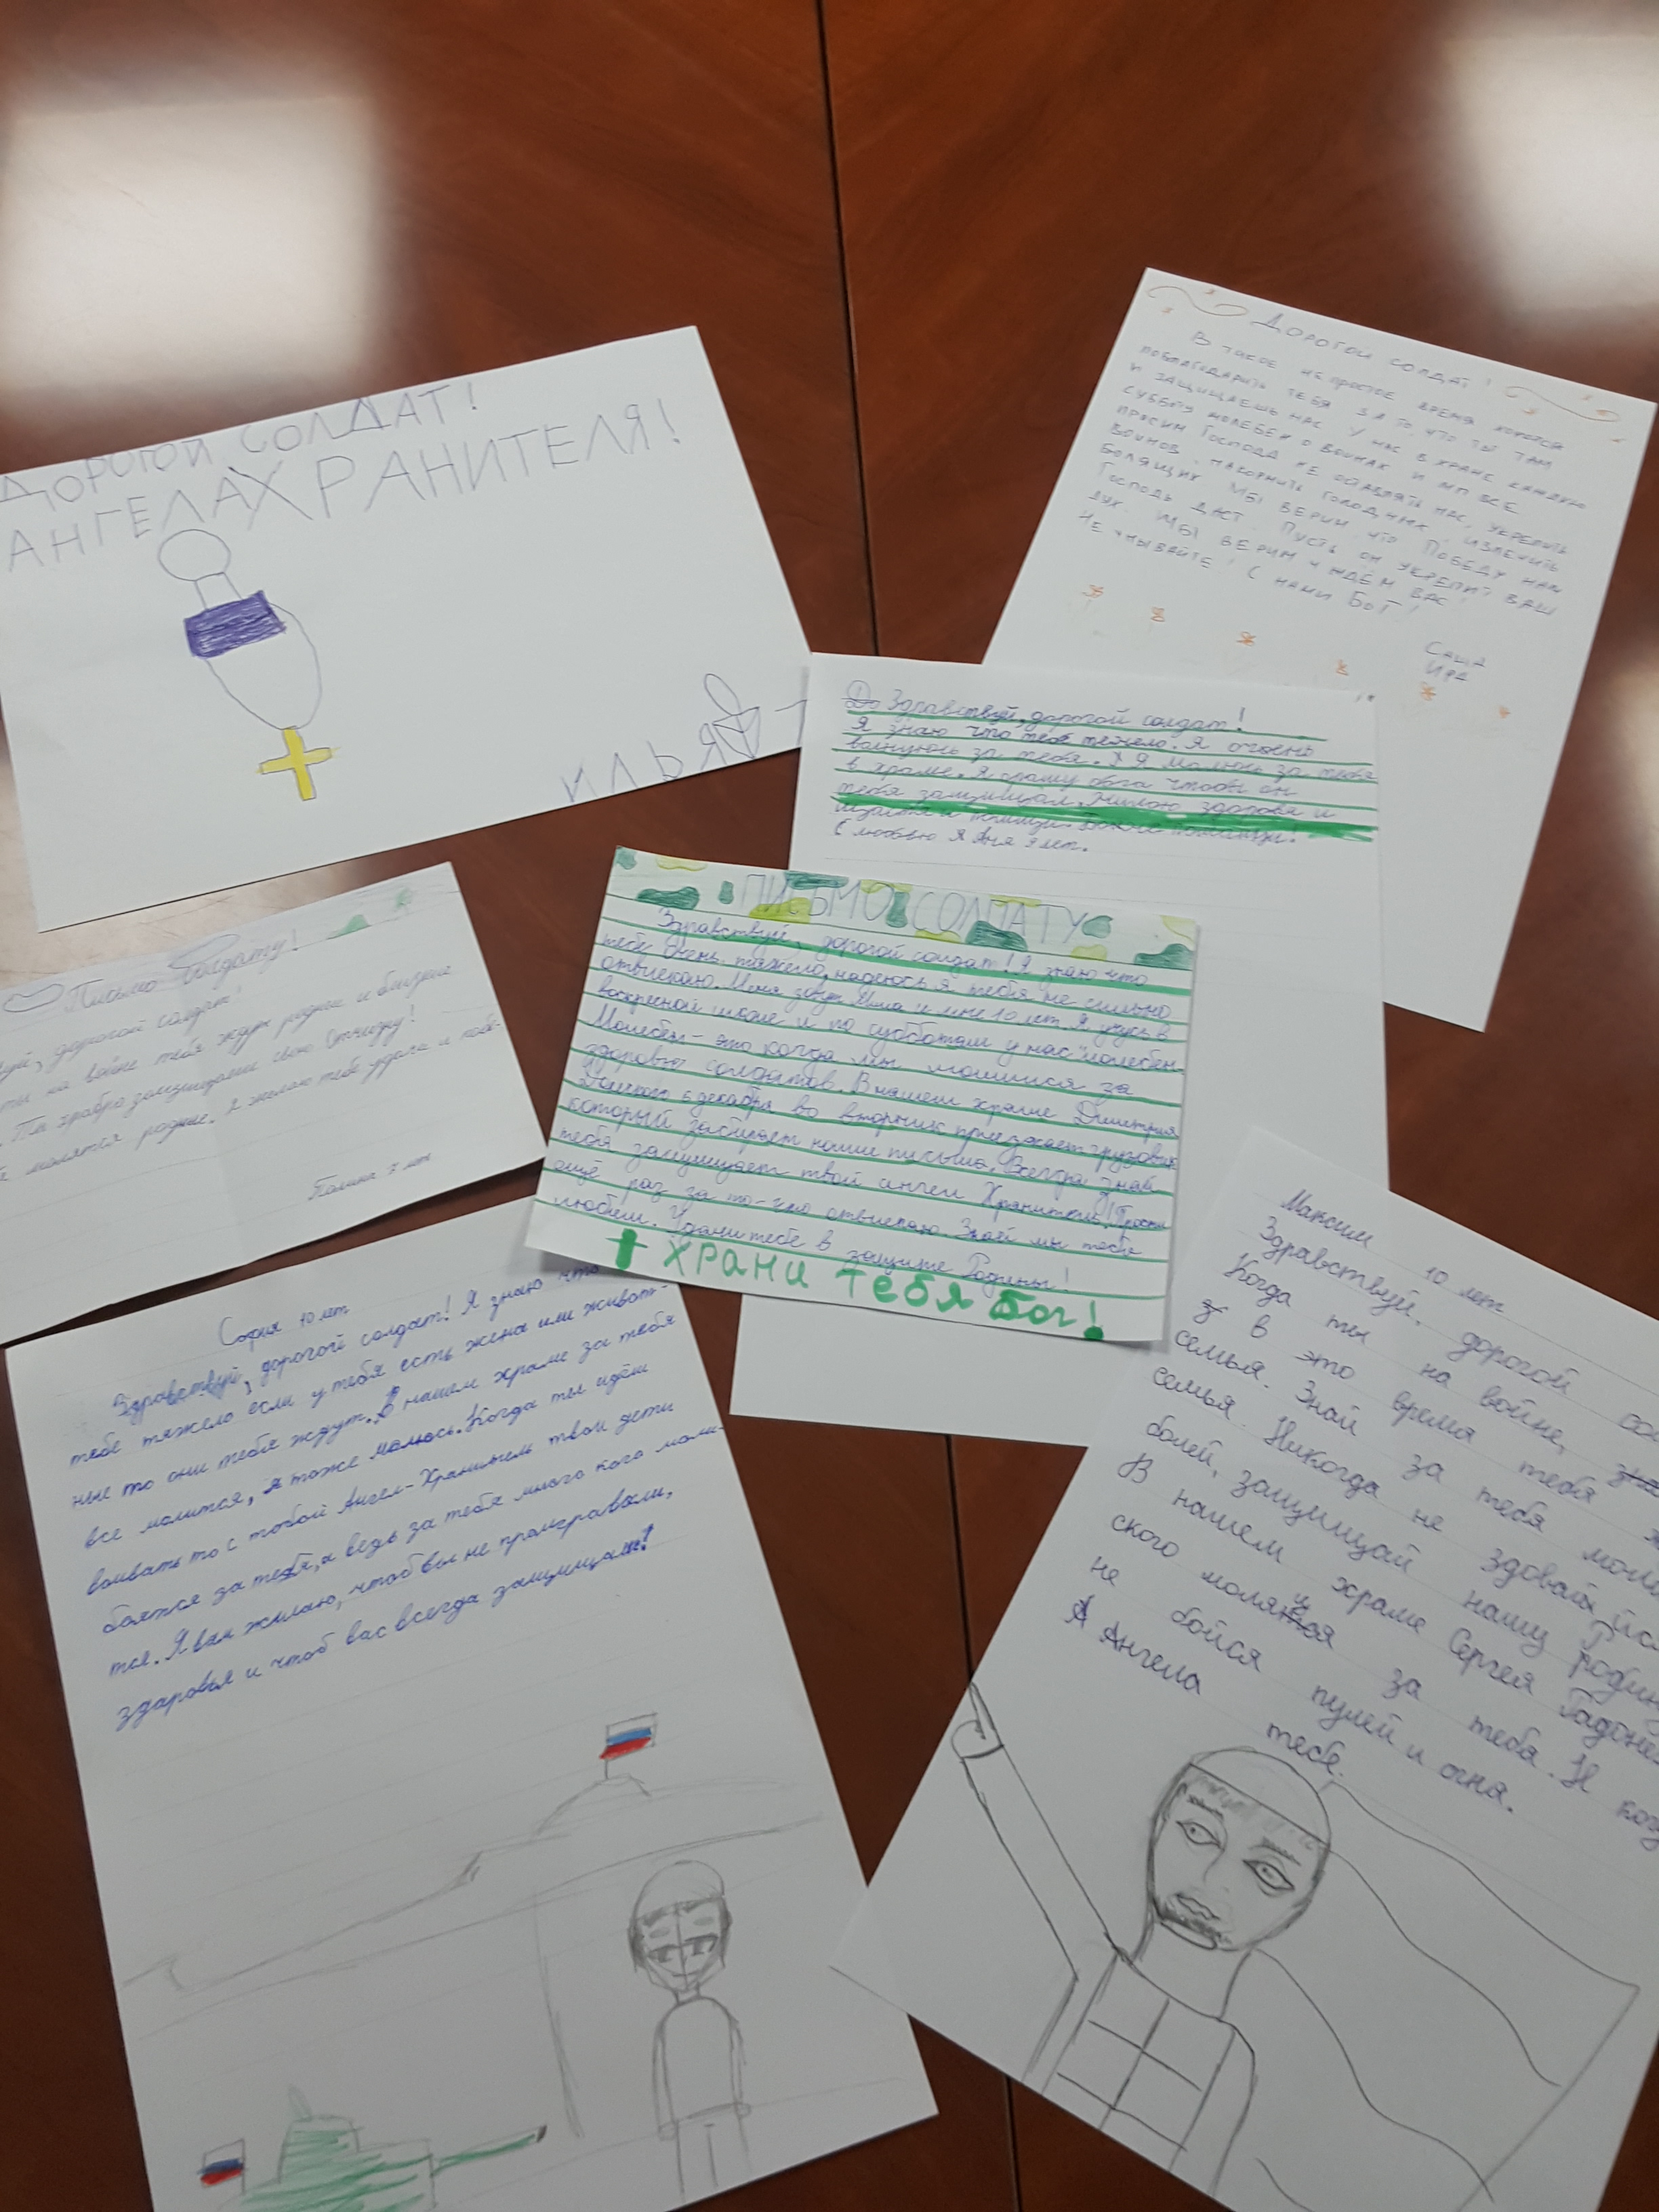 ДОРОГОЙ СОЛДАТ!
АНГЕЛАХРАНИТЕЛЯ!
ИЛЬЯ
ДОРОГОЙ СОЛДАТ!
В ТАКОЕ НЕ ПРОСТОЕ ВРЕМЯ ХОЧЕТСЯ
ПОБЛАГОДАРИТЬ ТЕБЯ ЗА ТО, ЧТО ТЫ ТАМ
И ЗАЩИЩАЕШЬ НАС. У НАС В ХРАМЕ КАЖДУЮ
СУББОТУ МОЛЕБЕН О ВОИНАХ И МЫ ВСЕ
ПРОСИМ ГОСПОДА НЕ ОСТАВЛЯТЬ НАС, УКРЕПИТЬ
ВОИНОВ, НАКОРМИТЬ ГОЛОДНЫХ, ИЗЛЕЧИТЬ
БОЛЯЩИХ. МЫ ВЕРИМ, ЧТО ПОБЕДУ НАМ
ГОСПОДЬ ДАСТ. ПУСТЬ ОН УКРЕПИТ ВАШ
ДУХ. МЫ ВЕРИМ И ЖДЁМ ВАС!
НЕ УНЫВАЙТЕ! С НАМИ БОГ!
САША
ИРА
До Здравствуй, дорогой солдат!
Я знаю что тебе тяжело. Я очень
волнуюсь за тебя. Я молюсь за тебя
в храме. Я прошу бога чтобы он
тебя защищал. Желаю здоровя и
С любовью я Аня 9 лет.
ПИСЬМО СОЛДАТУ
Здравствуй, дорогой солдат! Я знаю что
тебе очень тяжело, надеюсь я тебя не сильно
отвлекаю. Меня зовут и мне 10 лет. Я учусь в
воскресной школе и по субботам у нас "молебен
Молебен - это когда мы молимся за
здоровье солдатов. В нашем храме Дмитрия
Донского 6 декабря во вторник приезжает грузовик
который забирает наши письма. Всегда знай
тебя защищает твой ангел Хранитель! Прости
ещё раз за то-что отвлекаю. Знай мы тебя
любим. Удачи тебе в защите Родины!
ХРАНИ ТЕБЯ БОГ!
Письмо солдату!
дорогой солдат!
ты на войне тебя ждут родные и близкие
Ты храбро защищаешь свою Отчизну!
молятся родные. Я желаю тебе удачи и побе-
Полина 7 лет
София 10 лет
Здравствуй, дорогой солдат! Я знаю что
тебе тяжело если у тебя есть жена или живот-
ные то они тебя ждут. В нашем храме за тебя
все молится, я тоже молюсь. Когда ты идёш
воивать то с тобой Ангел-Хранитель твои дети
боятся за тебя, а ведь за тебя много кого моли-
тся. Я вам жилаю, чтоб вы не проигравали,
здаровья и чтоб вас всегда защищали!
Максим 10 лет
Здравствуй, дорогой
Когда ты на войне,
в это время тебя
семья. Знай за тебя
семья. Никогда не здовайся
болей, защищай нашу Родину
В нашем храме Сергея
ского молятся за тебя. И
не бойся пулей и огня.
А Ангела
тебе.